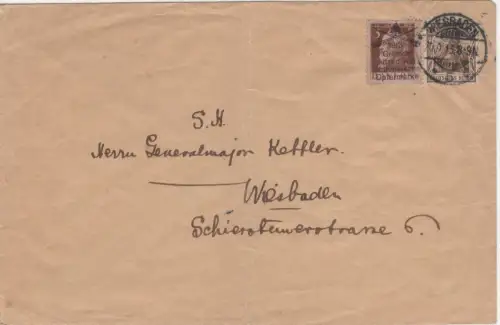 WIESBADEN
S. H.
Herrn Generalmajor Kettler.
Wiesbaden
Schiersteinerstrasse 6.